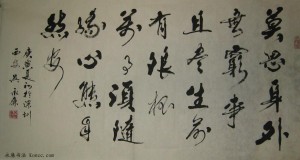 莫思身外
無窮事
且盡生前
有限杯
萬事須隨
緣心態自
然安
庚寅夏初於深圳